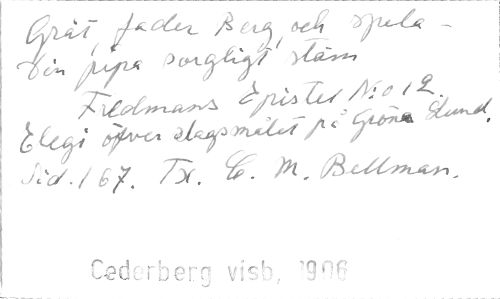 Gråt, fader Berg, och spela –
din pipa sorgligt stäm
Fredmans Epistel N:o 12.
Elegi öfver slagsmålet på Gröna Lund.
Sid. 167. Tx. C. M. Bellman.
Cederberg visb, 1906